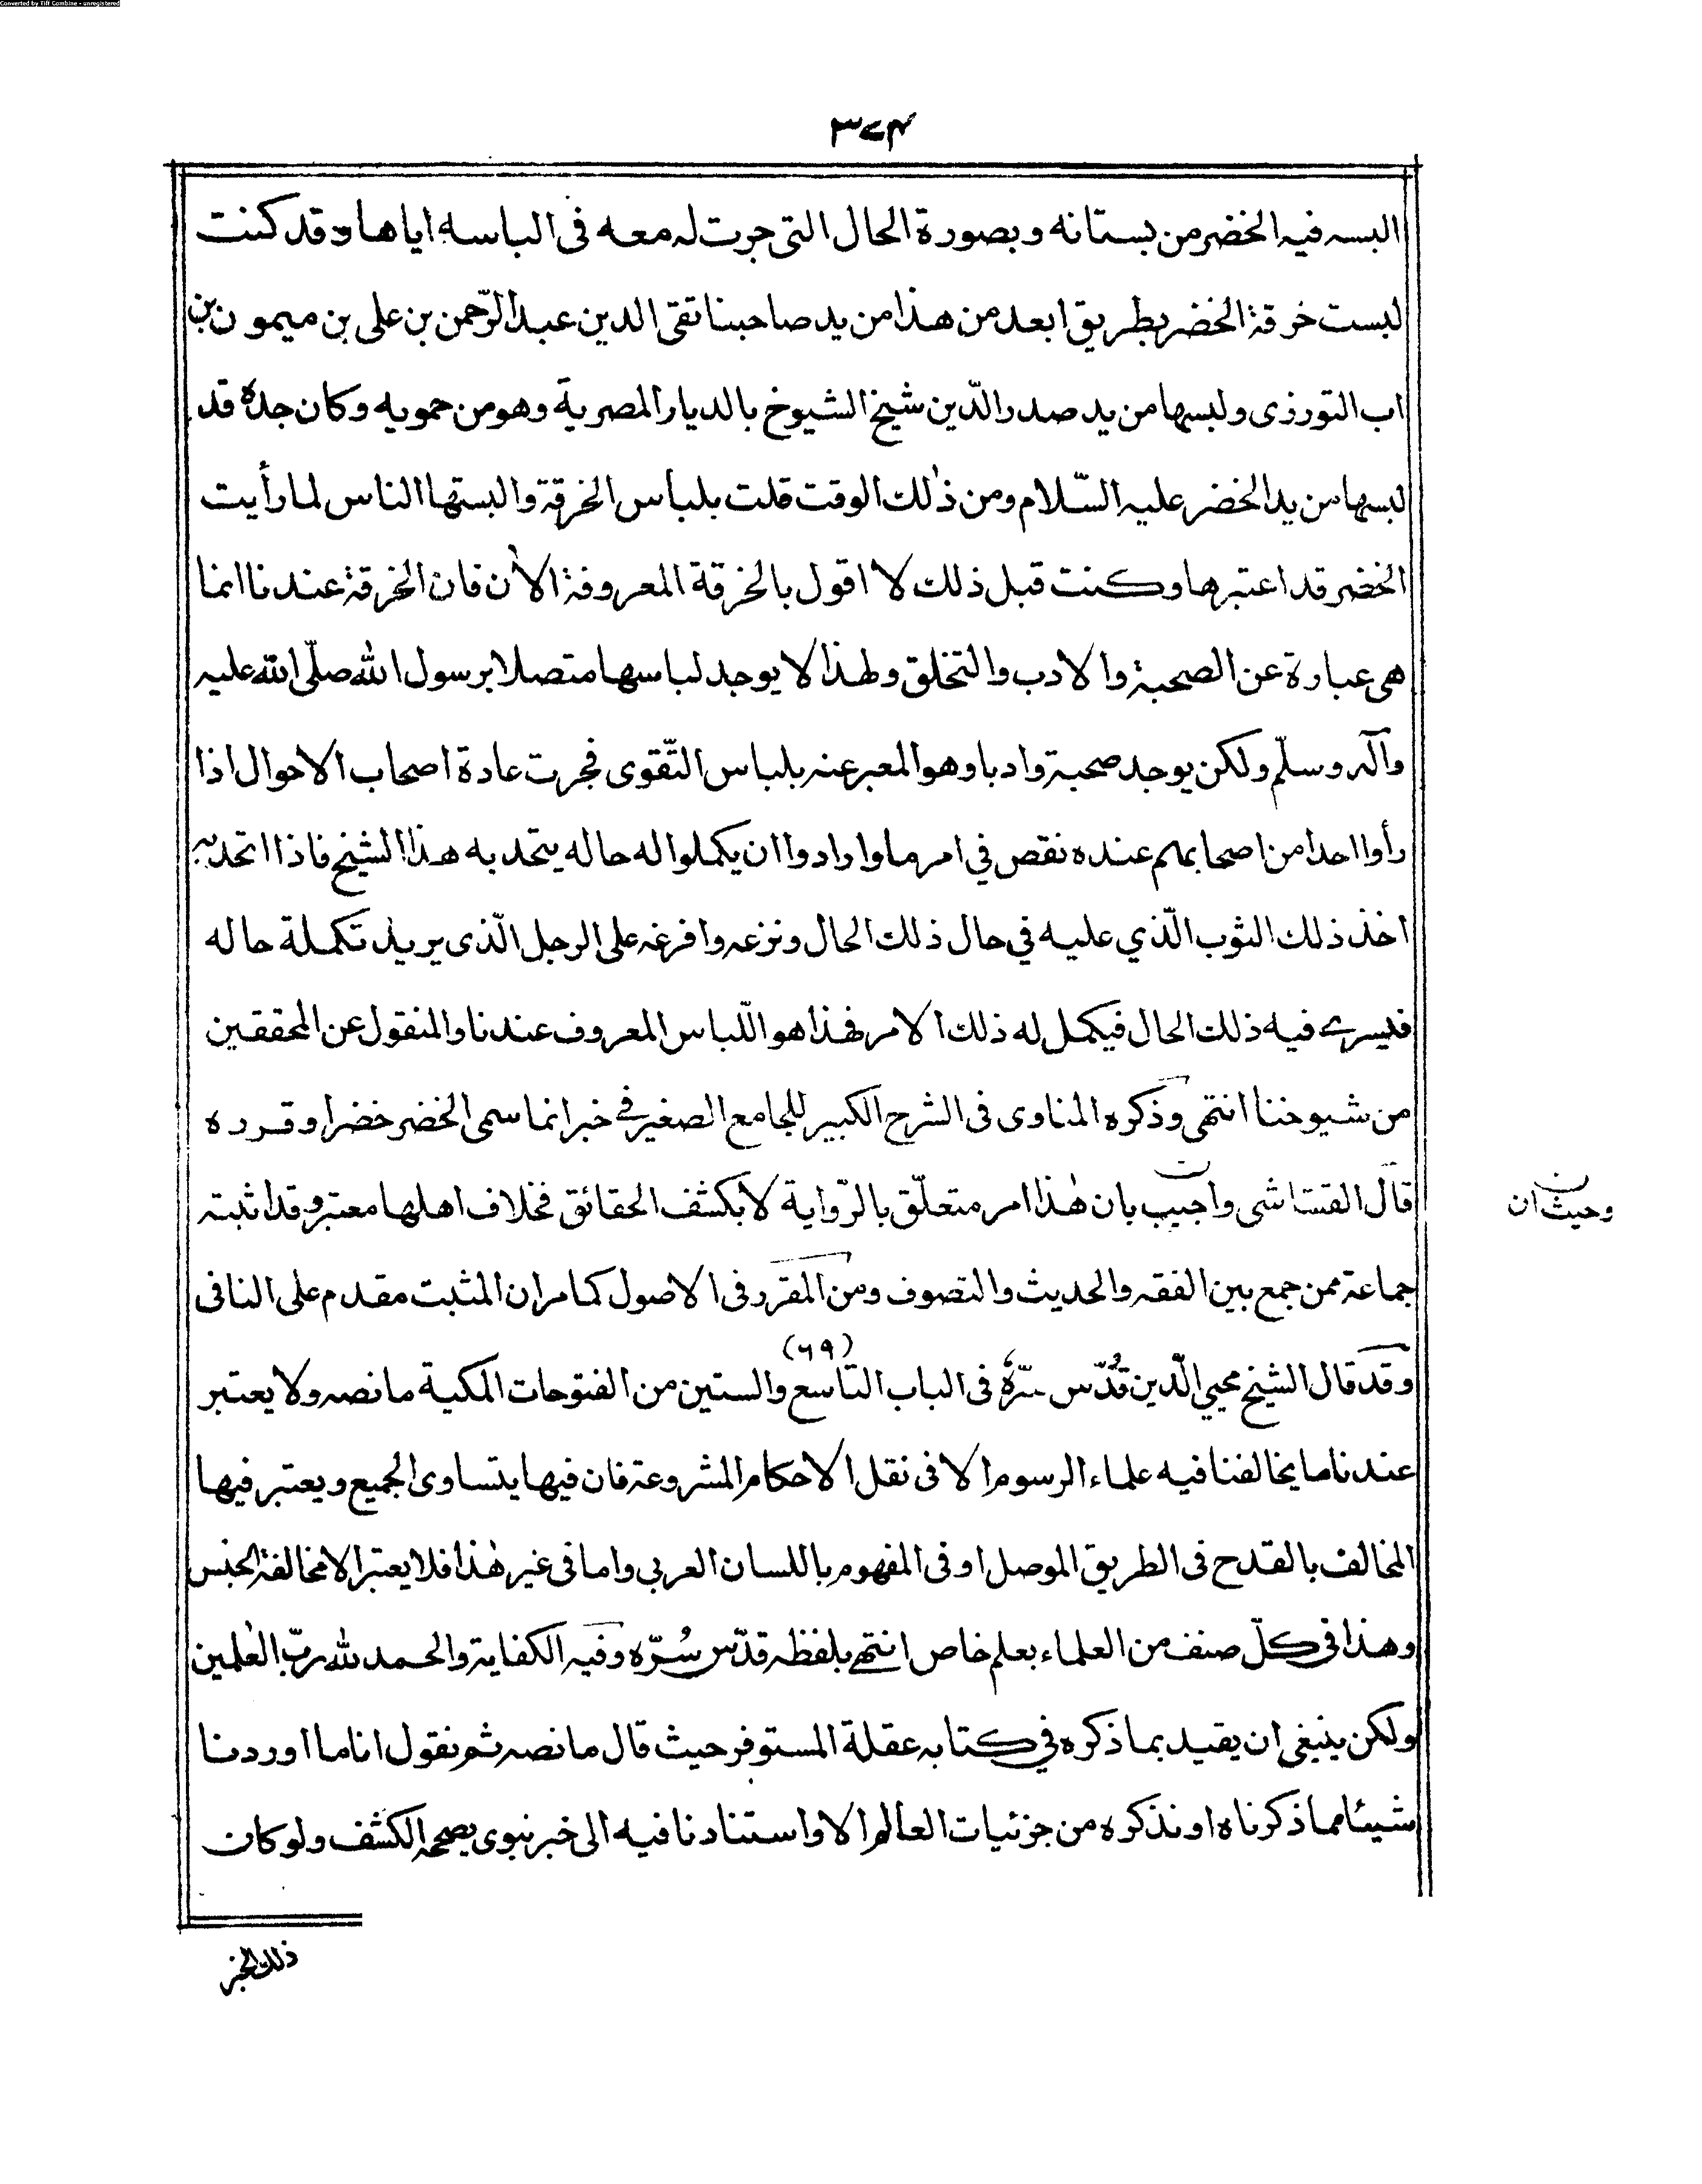 Converted by Tiff Combine - unregistered
٣٧٤
البسه فيه الخضر من بستانه وبصورة الحال التى جرت له معه فى الباسه اياها وقد كنت
لبست خرقة الخضر بطريق ابعد من هذا من يد صاحبنا تقى الدين عبد الرّحمن بن على بن ميمون بن
اب التورزى ولبسها من يد صدر الدّين شيخ الشيوخ بالديار المصرية وهو من حمويه وكان جده قد
لبسها من يد الخضر عليه السّلام ومن ذٰلك الوقت قلت بلباس الخرقة والبستها الناس لما رأيت
الخضر قد اعتبرها وكنت قبل ذلك لا اقول بالخرقة المعروفة الاٰن فان الخرقة عندنا انما
هى عبارة عن الصحبة والادب والتخلق ولهذا لا يوجد لباسها متصلا برسول الله صلّى الله عليه
وآله وسلّم ولكن يوجد صحبة وادبا وهو المعبر عنه بلباس التّقوى فجرت عادة اصحاب الاحوال اذا
رأوا احدا من اصحابهم عنده نقص في امر ما وارادوا ان يكملوا له حاله يتحد به هذا الشيخ فاذا اتحد به
اخذ ذلك الثوب الّذي عليه في حال ذلك الحال ونزعه وافرغه على الرجل الّذى يريد تكملة حاله
فيسرے فيه ذلك الحال فيكمل له ذلك الامر فهذا هو اللّباس المعروف عندنا والمنقول عن المحققين
من شيوخنا انتهى وذكره المناوى فى الشرح الكبير للجامع الصغير فے خبر انما سمى الخضر خضرا وقرره
قال القشاشى واجيب بان هٰذا امر متعلّق بالرّواية لا بكشف الحقائق فخلاف اهلها معتبر وقد اثبته
وحيث ان
جماعة ممن جمع بين الفقه والحديث والتصوف ومن المقرر فى الاصول كما مر ان المثبت مقدم على النافى
(٦٩)
وقد قال الشيخ محيي الدّين قُدّس سرّهٗ فى الباب التاسع والستين من الفتوحات المكية ما نصه ولا يعتبر
عندنا ما يخالفنا فيه علماء الرسوم الا فى نقل الاحكام المشروعة فان فيها يتساوى الجميع ويعتبر فيها
المخالف بالقدح فى الطريق الموصل او فى المفهوم باللسان العربي واما فى غير هٰذا فلا يعتبر الا مخالفة الجنس
وهذا فى كلّ صنف من العلماء بعلم خاص انتهى بلفظه قدّس سُرّه وفيه الكفاية والحمد لله ربّ العٰلمين
ولكن ينبغى ان يقيد بما ذكره في كتابه عقلة المستوفز حيث قال ما نصه ثم نقول انا ما اوردنا
شيئا مما ذكرناه او نذكره من جزئيات العالم الا واستنادنا فيه الى خبر نبوى يصححه الكشف ولو كان
ذلك الخبر